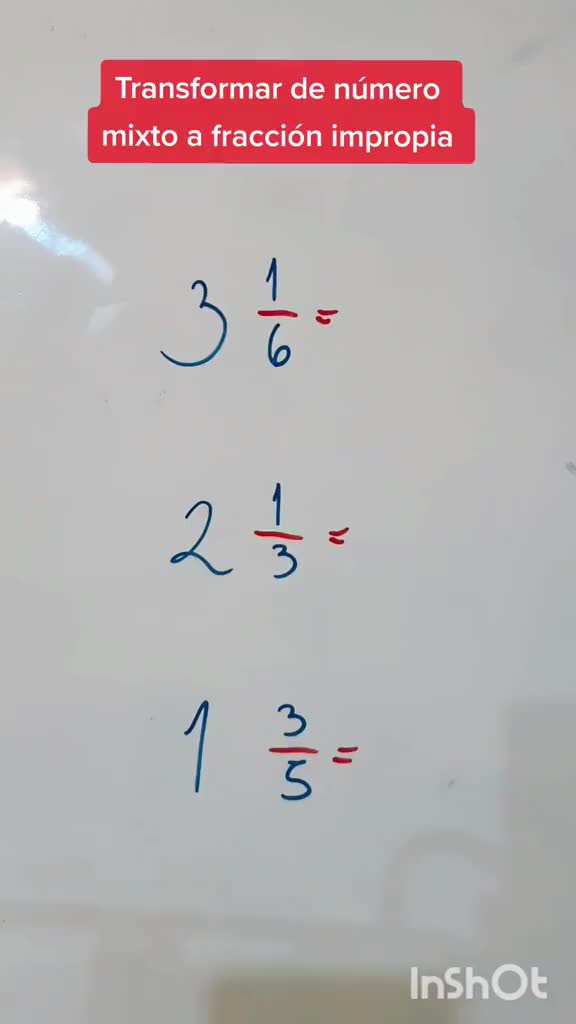 Transformar de número
mixto a fracción impropia
3 1/6 =
2 1/3 =
1 3/5 =
InShOt